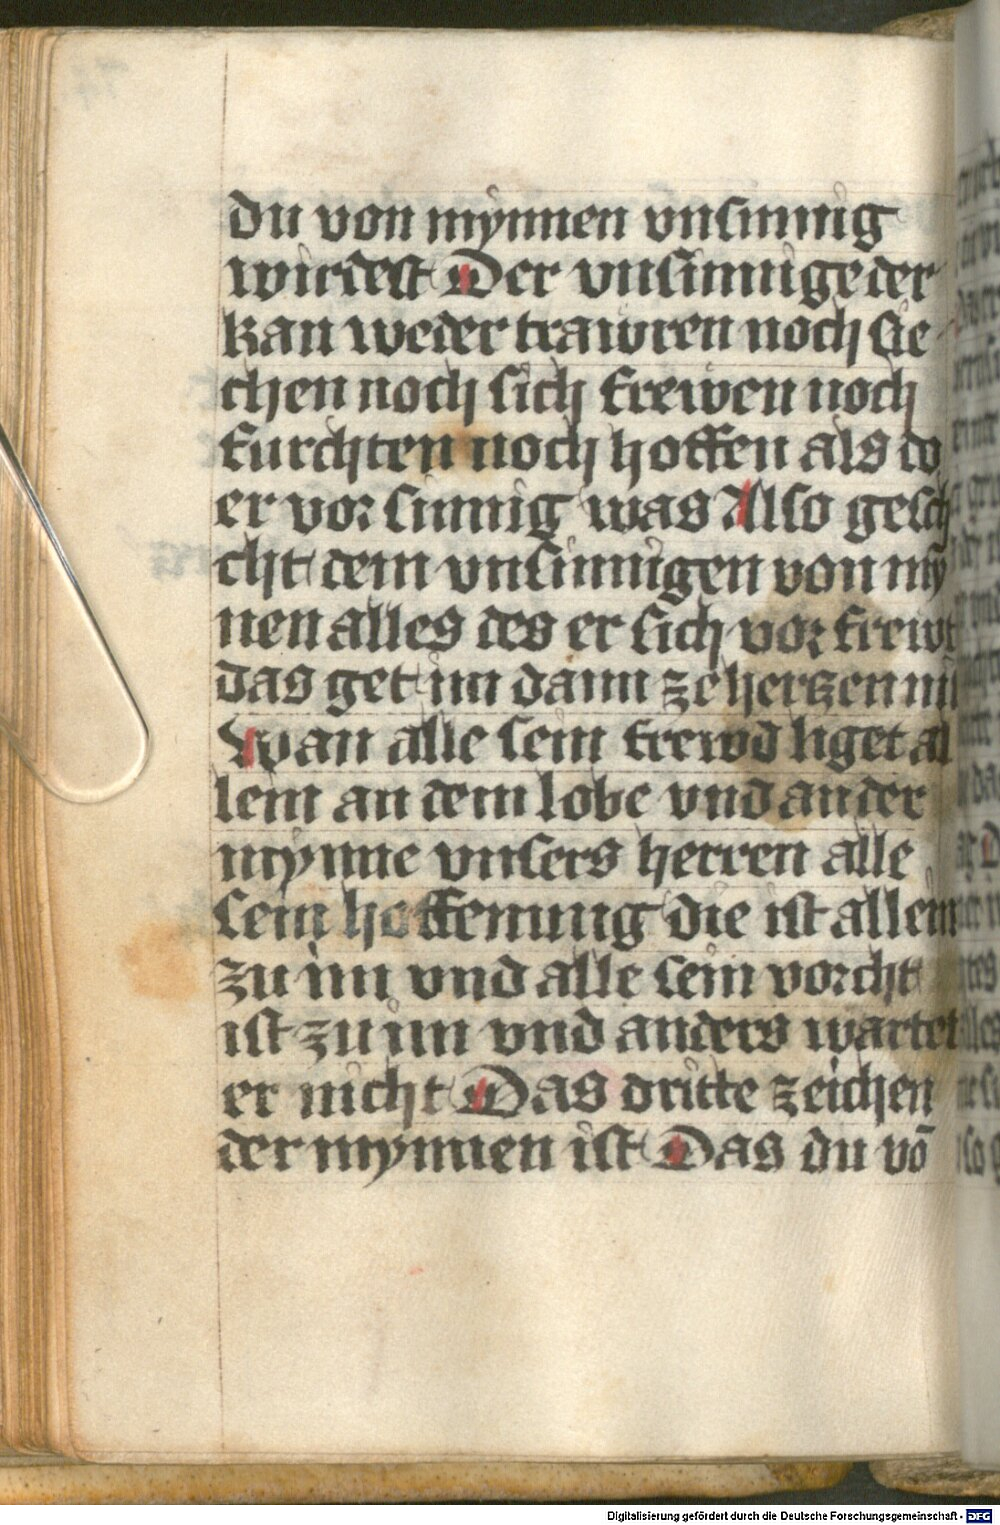 du von mynnen vnsinnig
wirdest Der vnsinnige der
kan weder trawren noch sie
chen noch sich frewen noch
furchten noch hoffen als do
er vor sinnig was Also gesch
cht dem vnsinnigen von my
nen alles des er sich vor frewt
das get im dann ze hertzen ni
Wan alle sein frewd liget al
lein an dem lobe vnd an der
mynne vnsers herren alle
sein hoffenung die ist allein
zu im vnd alle sein vorcht
ist zu im vnd anders wartet
er nicht Das dritte zeichen
der mynnen ist Das du vō
Digitalisierung gefördert durch die Deutsche Forschungsgemeinschaft - DFG